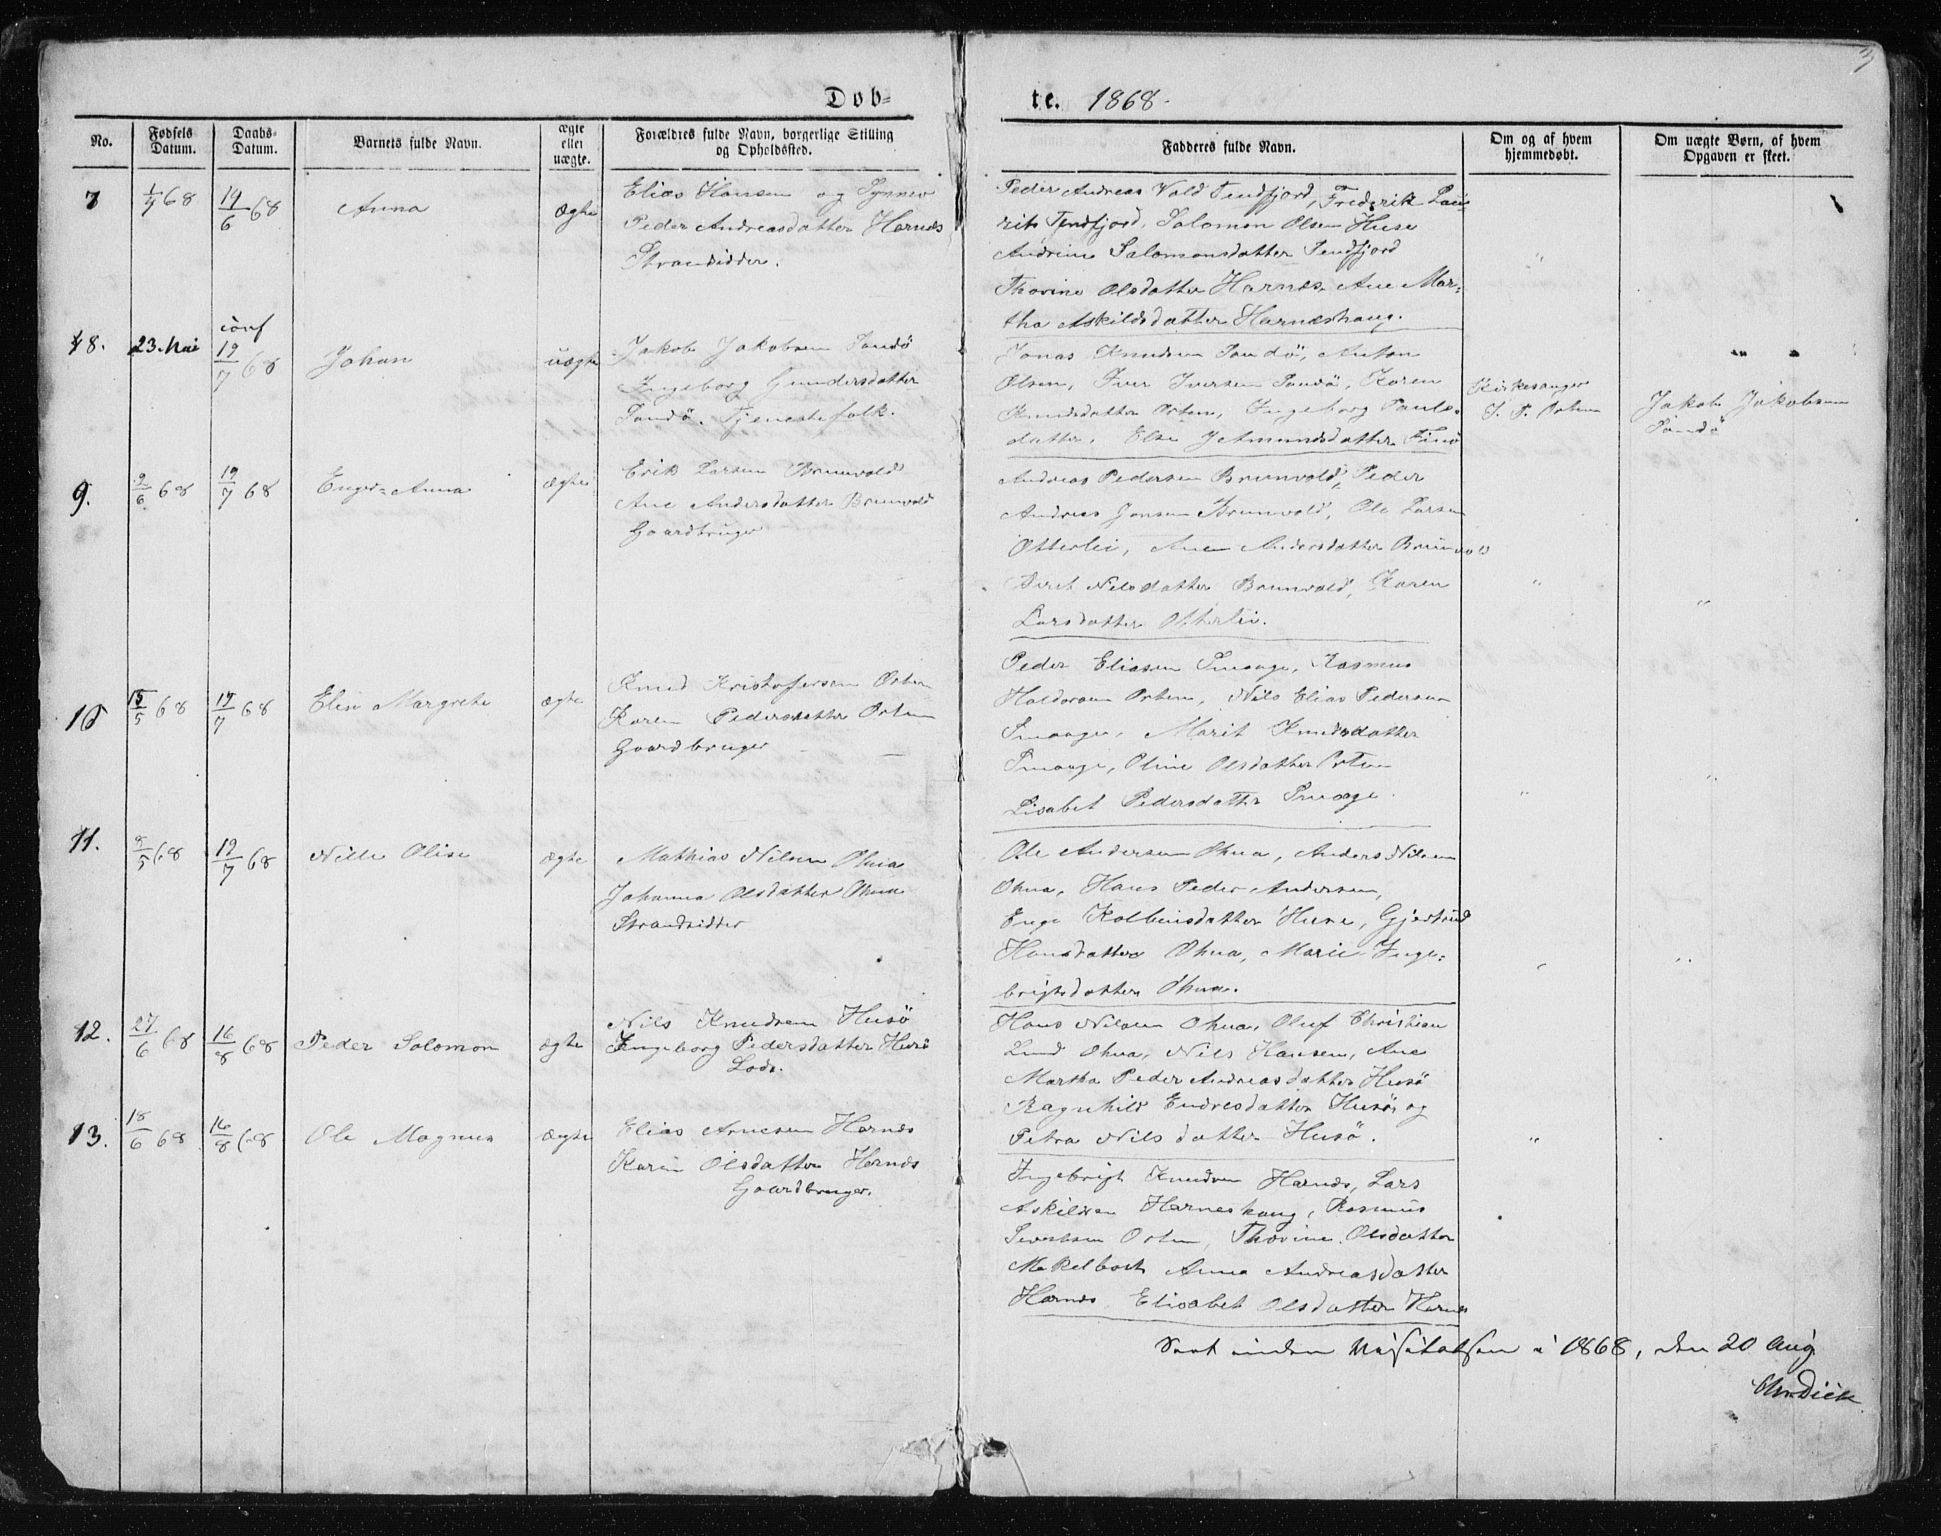 3
Døb-
te. 1868.
No.
Fødsels Datum.
Daabs- Datum.
Barnets fulde Navn.
ægte eller uægte.
Forældres fulde Navn, borgerlige Stilling og Opholdssted.
Faddernes fulde Navn.
Om og af hvem hjemmedøbt.
Om uægte Børn, af hvem Opgaven er skeet.
7
68
19/6 68
Anna
Ægte
Elias Hansen og Synnev
Peder Andreasdatter Harnæs
Strandsidder.
Peder Andreas Vold Tendfjord, Frederik Lau-
rits Tendfjord, Salomon Olsen Huse
Andrine Salomonsdatter Tendfjord
Thorine Olsdatter Harnæs, Ane Mar-
tha Askildsdatter Harnæshaug.
"
8.
23. Mai
conf
19/7 68
Johan
uægte
Jakob Jakobsen Sandø
Ingeborg Gundersdatter
Sandø. Tjenestefolk.
Jonas Knudsen Sandø, Anton
Olsen, Iver Iversen Sandø, Karen
Knudsdatter Orten, Ingeborg Pauls-
datter, Else Amundsdatter Finø
Kirkesanger
Orten
Jakob Jakobsen
Sandø
9.
9/6 68
19/7 68
Enger-Anna
ægte
Erik Larsen Brunvold
Ane Andersdatter Brunvold
Gaardbruger
Andreas Pedersen Brunvold, Peder
Andreas Jonsen Brunvold, Ole Larsen
Otterlei, Ane Andersdatter Brunvold
Beret Nilsdatter Brunvold, Karen
Larsdatter Otterlei.
"
"
10
15/5 68
19/7 68
Elen Margrete
ægte
Knud Kristoffersen Orten
Karen Pedersdatter Orten
Gaardbruger
Peder Eliasen Smaage, Rasmus
Haldorsen Orten, Nils Elias Pedersen
Smaage, Marit Knudsdatter
Smaage, Oline Olsdatter Orten
Lisabet Pedersdatter Smaage.
"
"
11.
9/5 68
19/7 68
Nille Olise
ægte
Mathias Nilsen Ohna
Johanna Olsdatter Ohna
Strandsidder
Ole Andersen Ohna, Anders Nilsen
Ohna, Hans Peder Andersen,
Enge Kolbeinsdatter Huse, Gjertrud
Hansdatter Ohna, Marie Inge-
brigtsdatter Ohna.
"
"
12.
27/6 68
16/8 68
Peder Salomon
ægte
Nils Knudsen Husø
Ingeborg Pedersdatter Husø
Lods.
Hans Nilsen Ohna, Oluf Christian
Lund Ohna, Nils Hansen, Ane
Martha Peder Andreasdatter Husø
Ragnhild Endresdatter Husø, og
Petra Nilsdatter Husø.
"
13.
18/6 68
16/8 68
Ole Magnus
ægte
Elias Arnesen Harnæs
Karen Olsdatter Harnæs
Gaardbruger.
Ingebrigt Knudsen Harnæs, Lars
Askildsen Harneshaug, Rasmus
Sivertsen Orten, Thorine Olsdatter
Mekelbost Anna Andreasdatter
Harnæs, Elisabet Olsdatter Harnæs
Seet under Visitatsen i 1868, den 20 Aug.